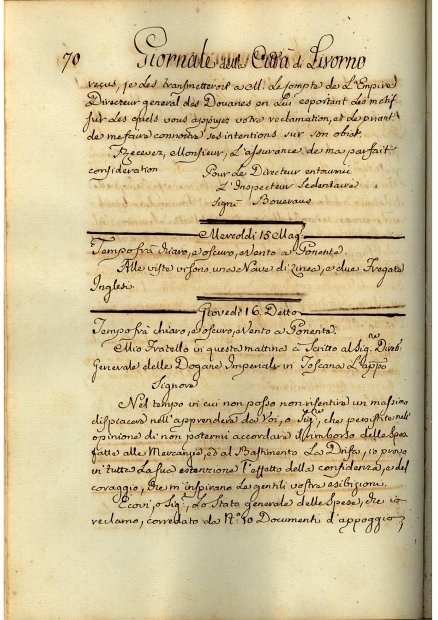 70 Giornale della Città di Livorno
reçus, je les transmetteroit a M. Le Compte de L'Empire
Directeur general des Douanes en Lui esportant les motif
sur des quels vous appuyez votre reclamation, et de priant
de me faire connoitre ses intentions sur son obiet.
Recevez, Monsieur, L'assurance de ma parfait
consideration Pour Le Directeur en tournee
L'Inspecteur Sedentaire
Signé Boueraus
Mercoldì 15 Mag.
Tempo frà chiaro, e oscuro, e Vento a Ponente.
Alle viste vi sono una Nave di Linea, e due Fregate
Inglesi.
Giovedì 16. Detto
Tempo frà chiaro, e oscuro, e Vento a Ponente.
Mio Fratello in questa mattina à Scritto al Sig.re Dirett.
Generale delle Dogane Imperiali in Toscana L'app.
Signore
Nel tempo in cui non posso non risentire un massimo
dispiacere nell'apprendere da Voi, o Sig.re, che persistete nell'
opinione di non potermi accordare il rimborso delle Spese
fatte alle Mercanzie, ed al Bastimento La Drifa, io provo
in tutta La sua estenzione l'effetto della confidenza, e del
coraggio, che m'inspirano Le gentili vostre esibizioni.
Eccovi, o Sig.re, Lo Stato generale delle Spese, che io
reclamo, corredato da N.o 30 Documenti d'appoggio;